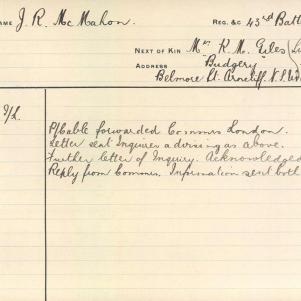 NAME J. R. McMahon. REG. &C 43rd Batt
NEXT OF KIN Mrs K. M. Giles
ADDRESS "Budgery"
Belmore St. Arncliff N.S.W.
P/Cable forwarded Commrs London.
Letter sent Inquirer advising as above.
Further letter of Inquiry. Acknowledged
Reply from Commrs. Information sent both